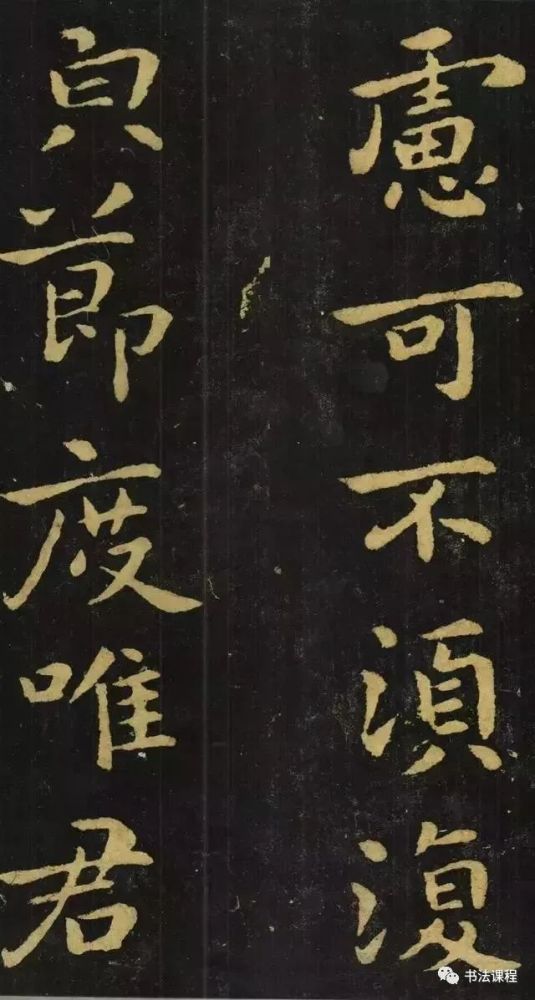 慮可不須復
貞節度唯君
书法课程